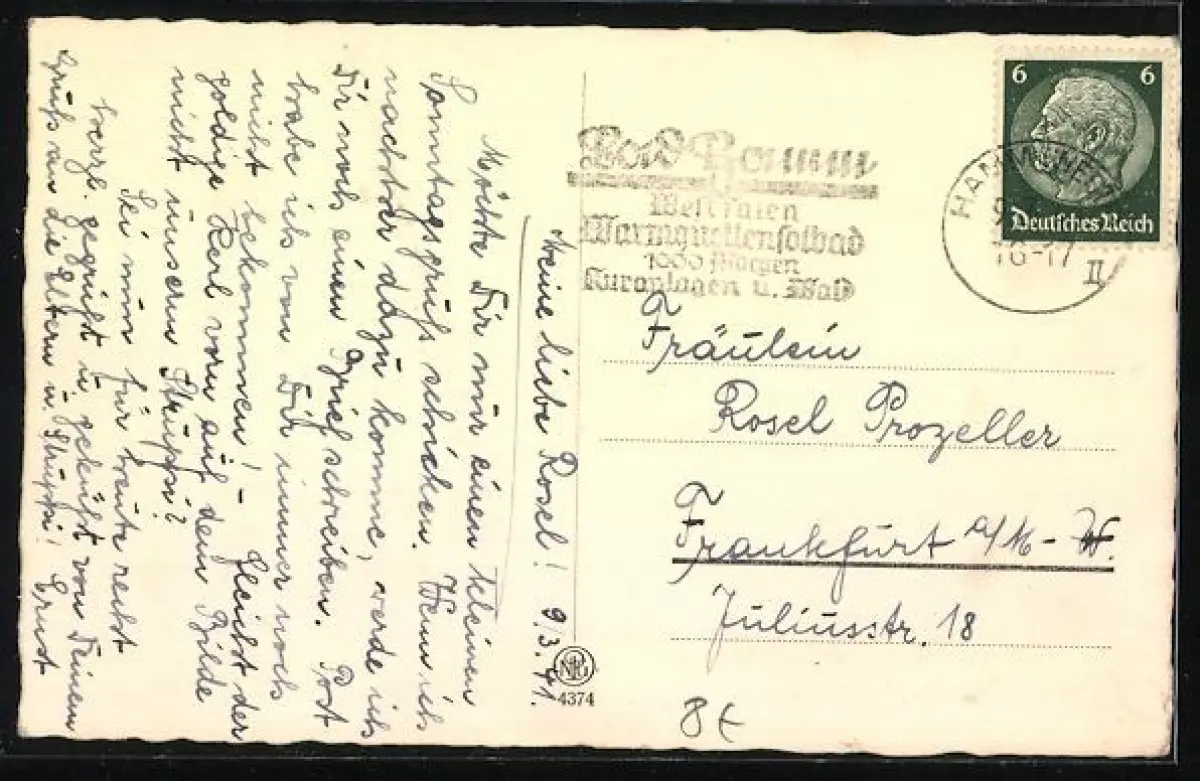 Meine liebe Rosel! 9.3.41.
Möchte Dir nur einen kleinen
Sonntagsgruß schicken. Wenn ich
nachher dazu komme, werde ich
Dir noch einen Brief schreiben. Post
habe ich von Dir immer noch
nicht bekommen! - Gleicht der
goldige Kerl vorn auf dem Bilde
nicht unserm Struppi?
Sei nun für heute recht
herzl. gegrüßt u. geküßt von Deinem
Ernst
Gruß an die Eltern u. Struppi!
Bad Hamm
Westfalen
Warmquellensolbad
1000 Morgen
Kuranlagen u. Wald
6 6
Deutsches Reich
HAMM
16-17
II
Fräulein
Rosel Prozeller
Frankfurt a/M - W.
Juliusstr. 18
4374
8€